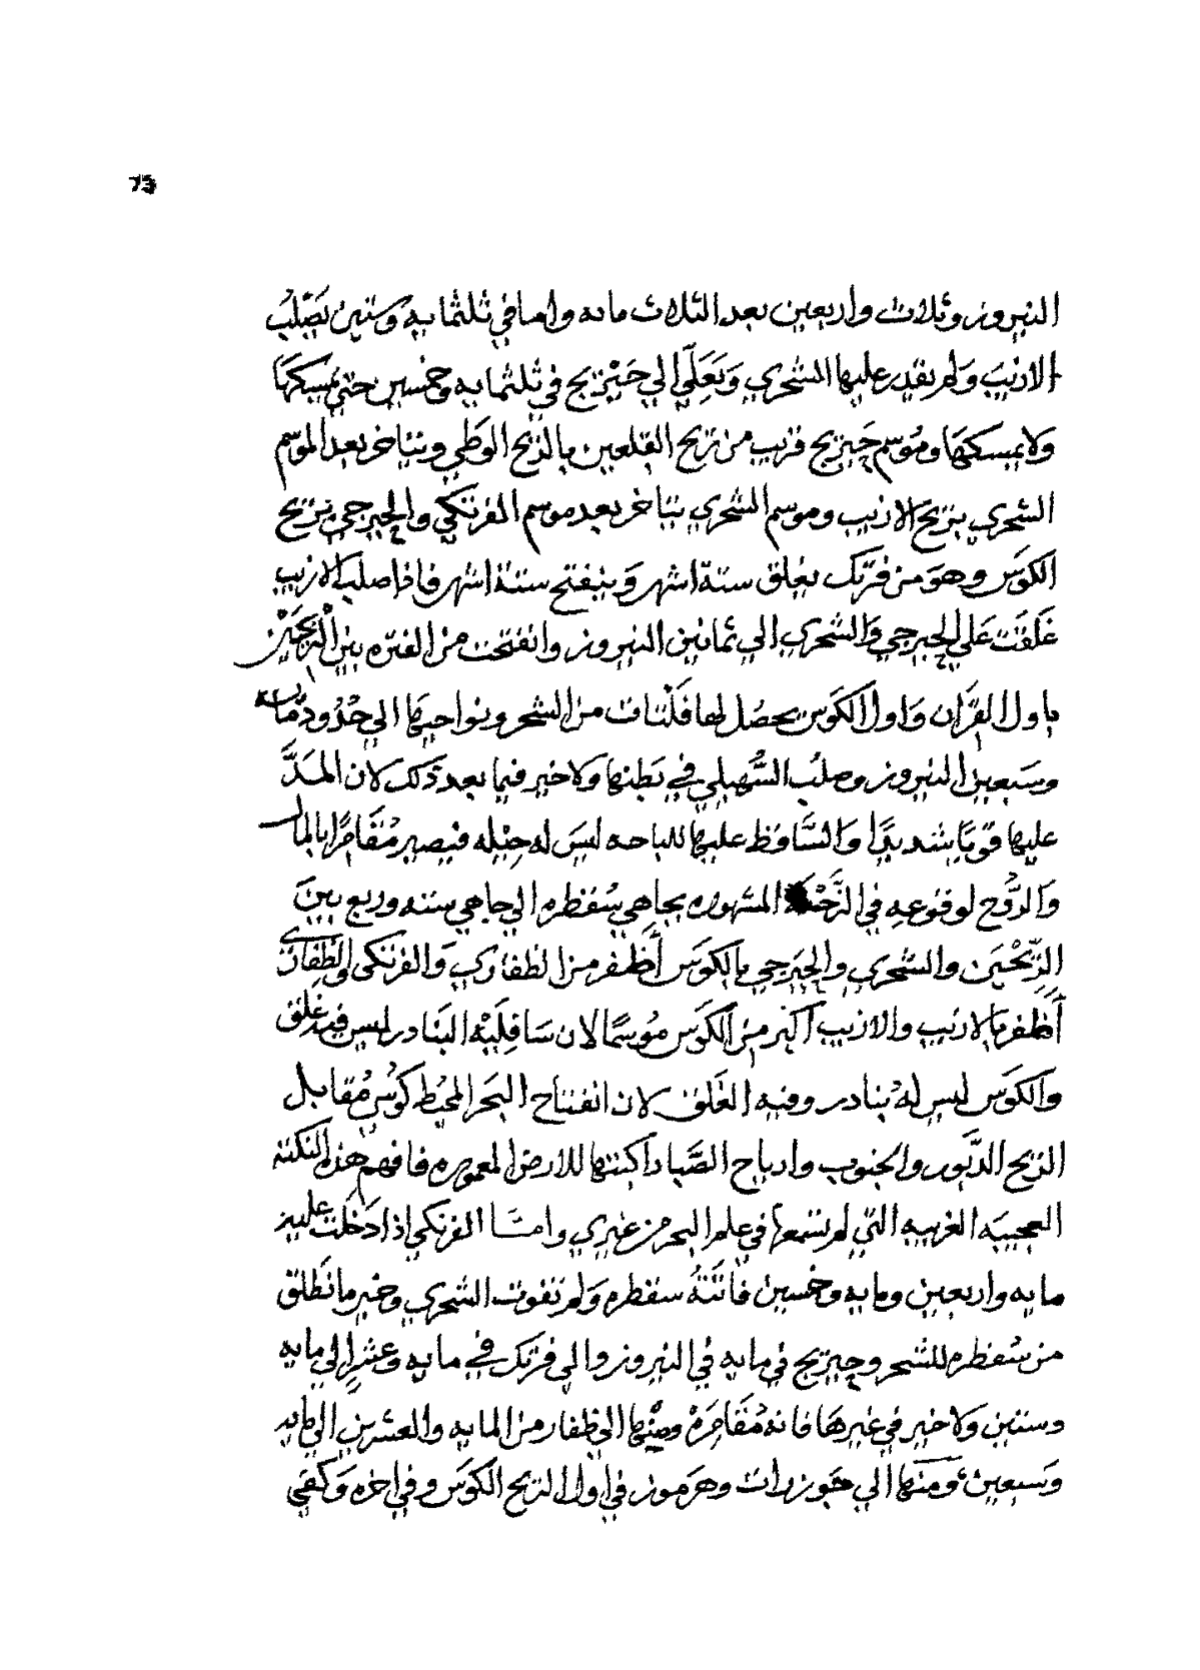 73
النيروز وثلاث واربعين بعد الثلاث مايه واما في ثلثمايه وستين يصلب
الازيب ولم يقدر عليها الشحري وتعلي الي حيريج في ثلثمايه وخمسين حتي يمسكها
ولا يمسكها وموسم حيريج قريب من تريح القلعين بالريح الوطي ويتاخر بعد الموسم
الشحري بتريح الازيب وموسم الشحري يتاخر بعد موسم الفرتكي والجيرجي بتريح
الكوس وهو من فرتك يغلق ستة اشهر وينفتح ستة اشهر فاذا صلب الازيب
غلقت علي الجيرجي والشحري الي ثمانين النيروز وانفتحت من الفتره بين الريحين
باول القران واول الكوس يحصل لها فلتات من الشحر ونواحيها الي حدود مايه
وسبعين النيروز وصلب السهيلي في بطنها ولا خير فيما بعد ذلك لان المد
عليها قويا شديدا والساقظ عليها للباحه ليس له حيله فيصير مقامرا بالمال
والروح لوقوعه في المشهوره بجاهي سقطره الي جاهي سته وربع بين
الريحين والشحري والجيرجي بالكوس أظفر من الظفاري والفرتكى والظفاري
أظفر بالازيب والازيب اكثر من الكوس موسما لان سافليه البنادر ليس فيه غلق
والكوس ليس له بنادر وفيه الغلق لان انفتاح البحر المحيط كوس مقابل
الريح الدبور والجنوب وارياح الصبا داكنتها للارض المعموره فافهم هذه النكتة
العجيبه الغريبه التي لم تسمعها في علم البحر من غيري وامـا الفرتكي اذا دخلت عليه
مايه واربعين ومايه وخمسين فاتته سقطره ولم تفوت الشحري وخير ما نطلق
من سقطره للشحر وحيريج في مايه في النيروز والي فرتك في مايه وعشر الي مايه
وستين ولا خير في غيرها فانه مقامره ومنها الي ظفار من المايه والعشرين الي مايه
وسبعين ومنها الي جوزرات وهرموز في اول الريح الكوس وفي اخره وكفي